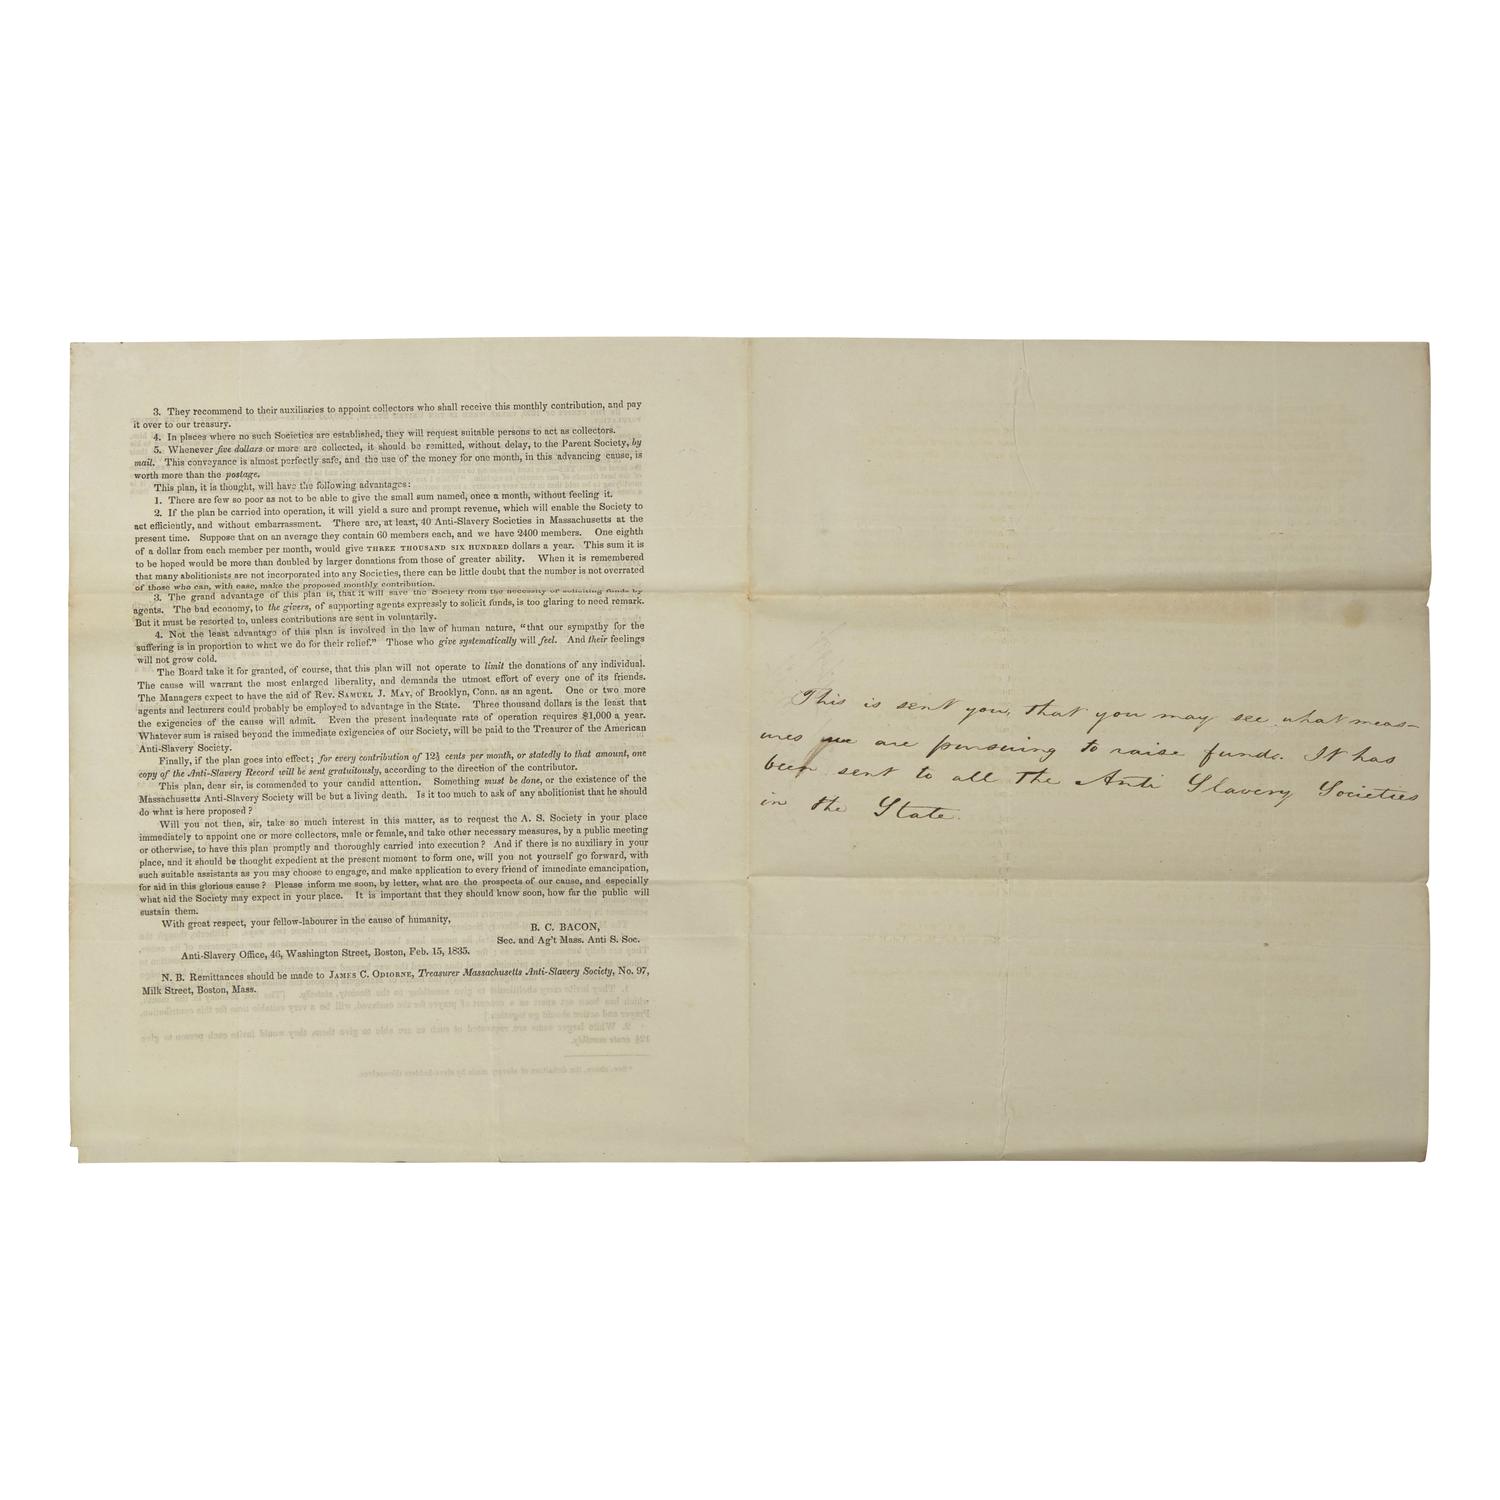 3. They recommend to their auxiliaries to appoint collectors who shall receive this monthly contribution, and pay
it over to our treasury.
4. In places where no such Societies are established, they will request suitable persons to act as collectors.
5. Whenever five dollars or more are collected, it should be remitted, without delay, to the Parent Society, by
mail. This conveyance is almost perfectly safe, and the use of the money for one month, in this advancing cause, is
worth more than the postage.
This plan, it is thought, will have the following advantages:
1. There are few so poor as not to be able to give the small sum named, once a month, without feeling it.
2. If the plan be carried into operation, it will yield a sure and prompt revenue, which will enable the Society to
act efficiently, and without embarrassment. There are, at least, 40 Anti-Slavery Societies in Massachusetts at the
present time. Suppose that on an average they contain 60 members each, and we have 2400 members. One eighth
of a dollar from each member per month, would give THREE THOUSAND SIX HUNDRED dollars a year. This sum it is
to be hoped would be more than doubled by larger donations from those of greater ability. When it is remembered
that many abolitionists are not incorporated into any Societies, there can be little doubt that the number is not overrated
of those who can, with ease, make the proposed monthly contribution.
3. The grand advantage of this plan is, that it will save the Society from the necessity of soliciting funds by
agents. The bad economy, to the givers, of supporting agents expressly to solicit funds, is too glaring to need remark.
But it must be resorted to, unless contributions are sent in voluntarily.
4. Not the least advantage of this plan is involved in the law of human nature, "that our sympathy for the
suffering is in proportion to what we do for their relief." Those who give systematically will feel. And their feelings
will not grow cold.
The Board take it for granted, of course, that this plan will not operate to limit the donations of any individual.
The cause will warrant the most enlarged liberality, and demands the utmost effort of every one of its friends.
The Managers expect to have the aid of Rev. SAMUEL J. MAY, of Brooklyn, Conn. as an agent. One or two more
agents and lecturers could probably be employed to advantage in the State. Three thousand dollars is the least that
the exigencies of the cause will admit. Even the present inadequate rate of operation requires $1,000 a year.
Whatever sum is raised beyond the immediate exigencies of our Society, will be paid to the Treasurer of the American
Anti-Slavery Society.
Finally, if the plan goes into effect; for every contribution of 12½ cents per month, or statedly to that amount, one
copy of the Anti-Slavery Record will be sent gratuitously, according to the direction of the contributor.
This plan, dear sir, is commended to your candid attention. Something must be done, or the existence of the
Massachusetts Anti-Slavery Society will be but a living death. Is it too much to ask of any abolitionist that he should
do what is here proposed?
Will you not then, sir, take so much interest in this matter, as to request the A. S. Society in your place
immediately to appoint one or more collectors, male or female, and take other necessary measures, by a public meeting
or otherwise, to have this plan promptly and thoroughly carried into execution? And if there is no auxiliary in your
place, and it should be thought expedient at the present moment to form one, will you not yourself go forward, with
such suitable assistants as you may choose to engage, and make application to every friend of immediate emancipation,
for aid in this glorious cause? Please inform me soon, by letter, what are the prospects of our cause, and especially
what aid the Society may expect in your place. It is important that they should know soon, how far the public will
sustain them.
With great respect, your fellow-labourer in the cause of humanity,
B. C. BACON,
Sec. and Ag't Mass. Anti S. Soc.
Anti-Slavery Office, 46, Washington Street, Boston, Feb. 15, 1835.
N. B. Remittances should be made to JAMES C. ODIORNE, Treasurer Massachusetts Anti-Slavery Society, No. 97,
Milk Street, Boston, Mass.
This is sent you, that you may see what meas-
ures we are pursuing to raise funds. It has
been sent to all the Anti Slavery Societies
in the State.